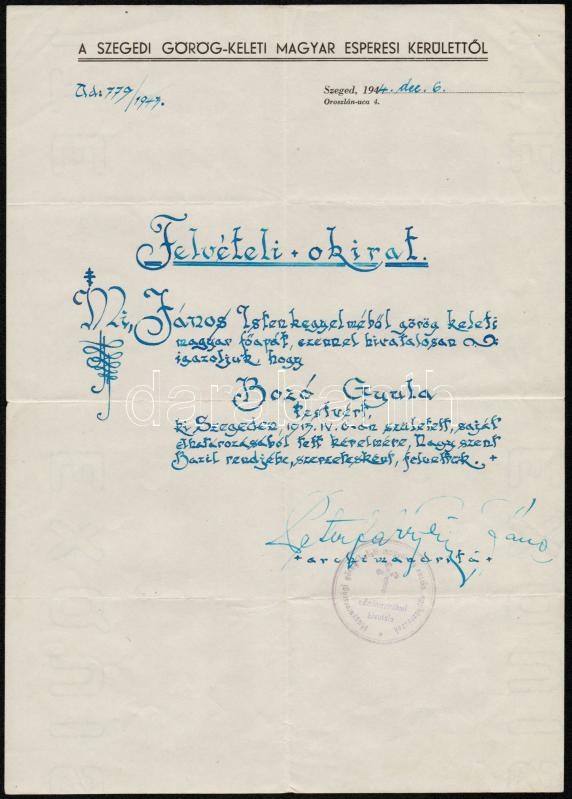 A SZEGEDI GÖRÖG-KELETI MAGYAR ESPERESI KERÜLETTŐL
Ad: 779/1943.
Szeged, 1944. dec. 6.
Oroszlán-uca 4.
Felvételi + okirat.
Mi, János Isten kegyelméből görög keleti
magyar főapát, ezennel hivatalosan
igazoljuk, hogy
Bozó Gyula
testvért,
ki Szegeden, IV. született, saját
elhatározásából tett kérelmére, Nagy szent
Bazil rendjébe, szerzetesként, felvettük. +
János
+ archimandrita +
darabanth